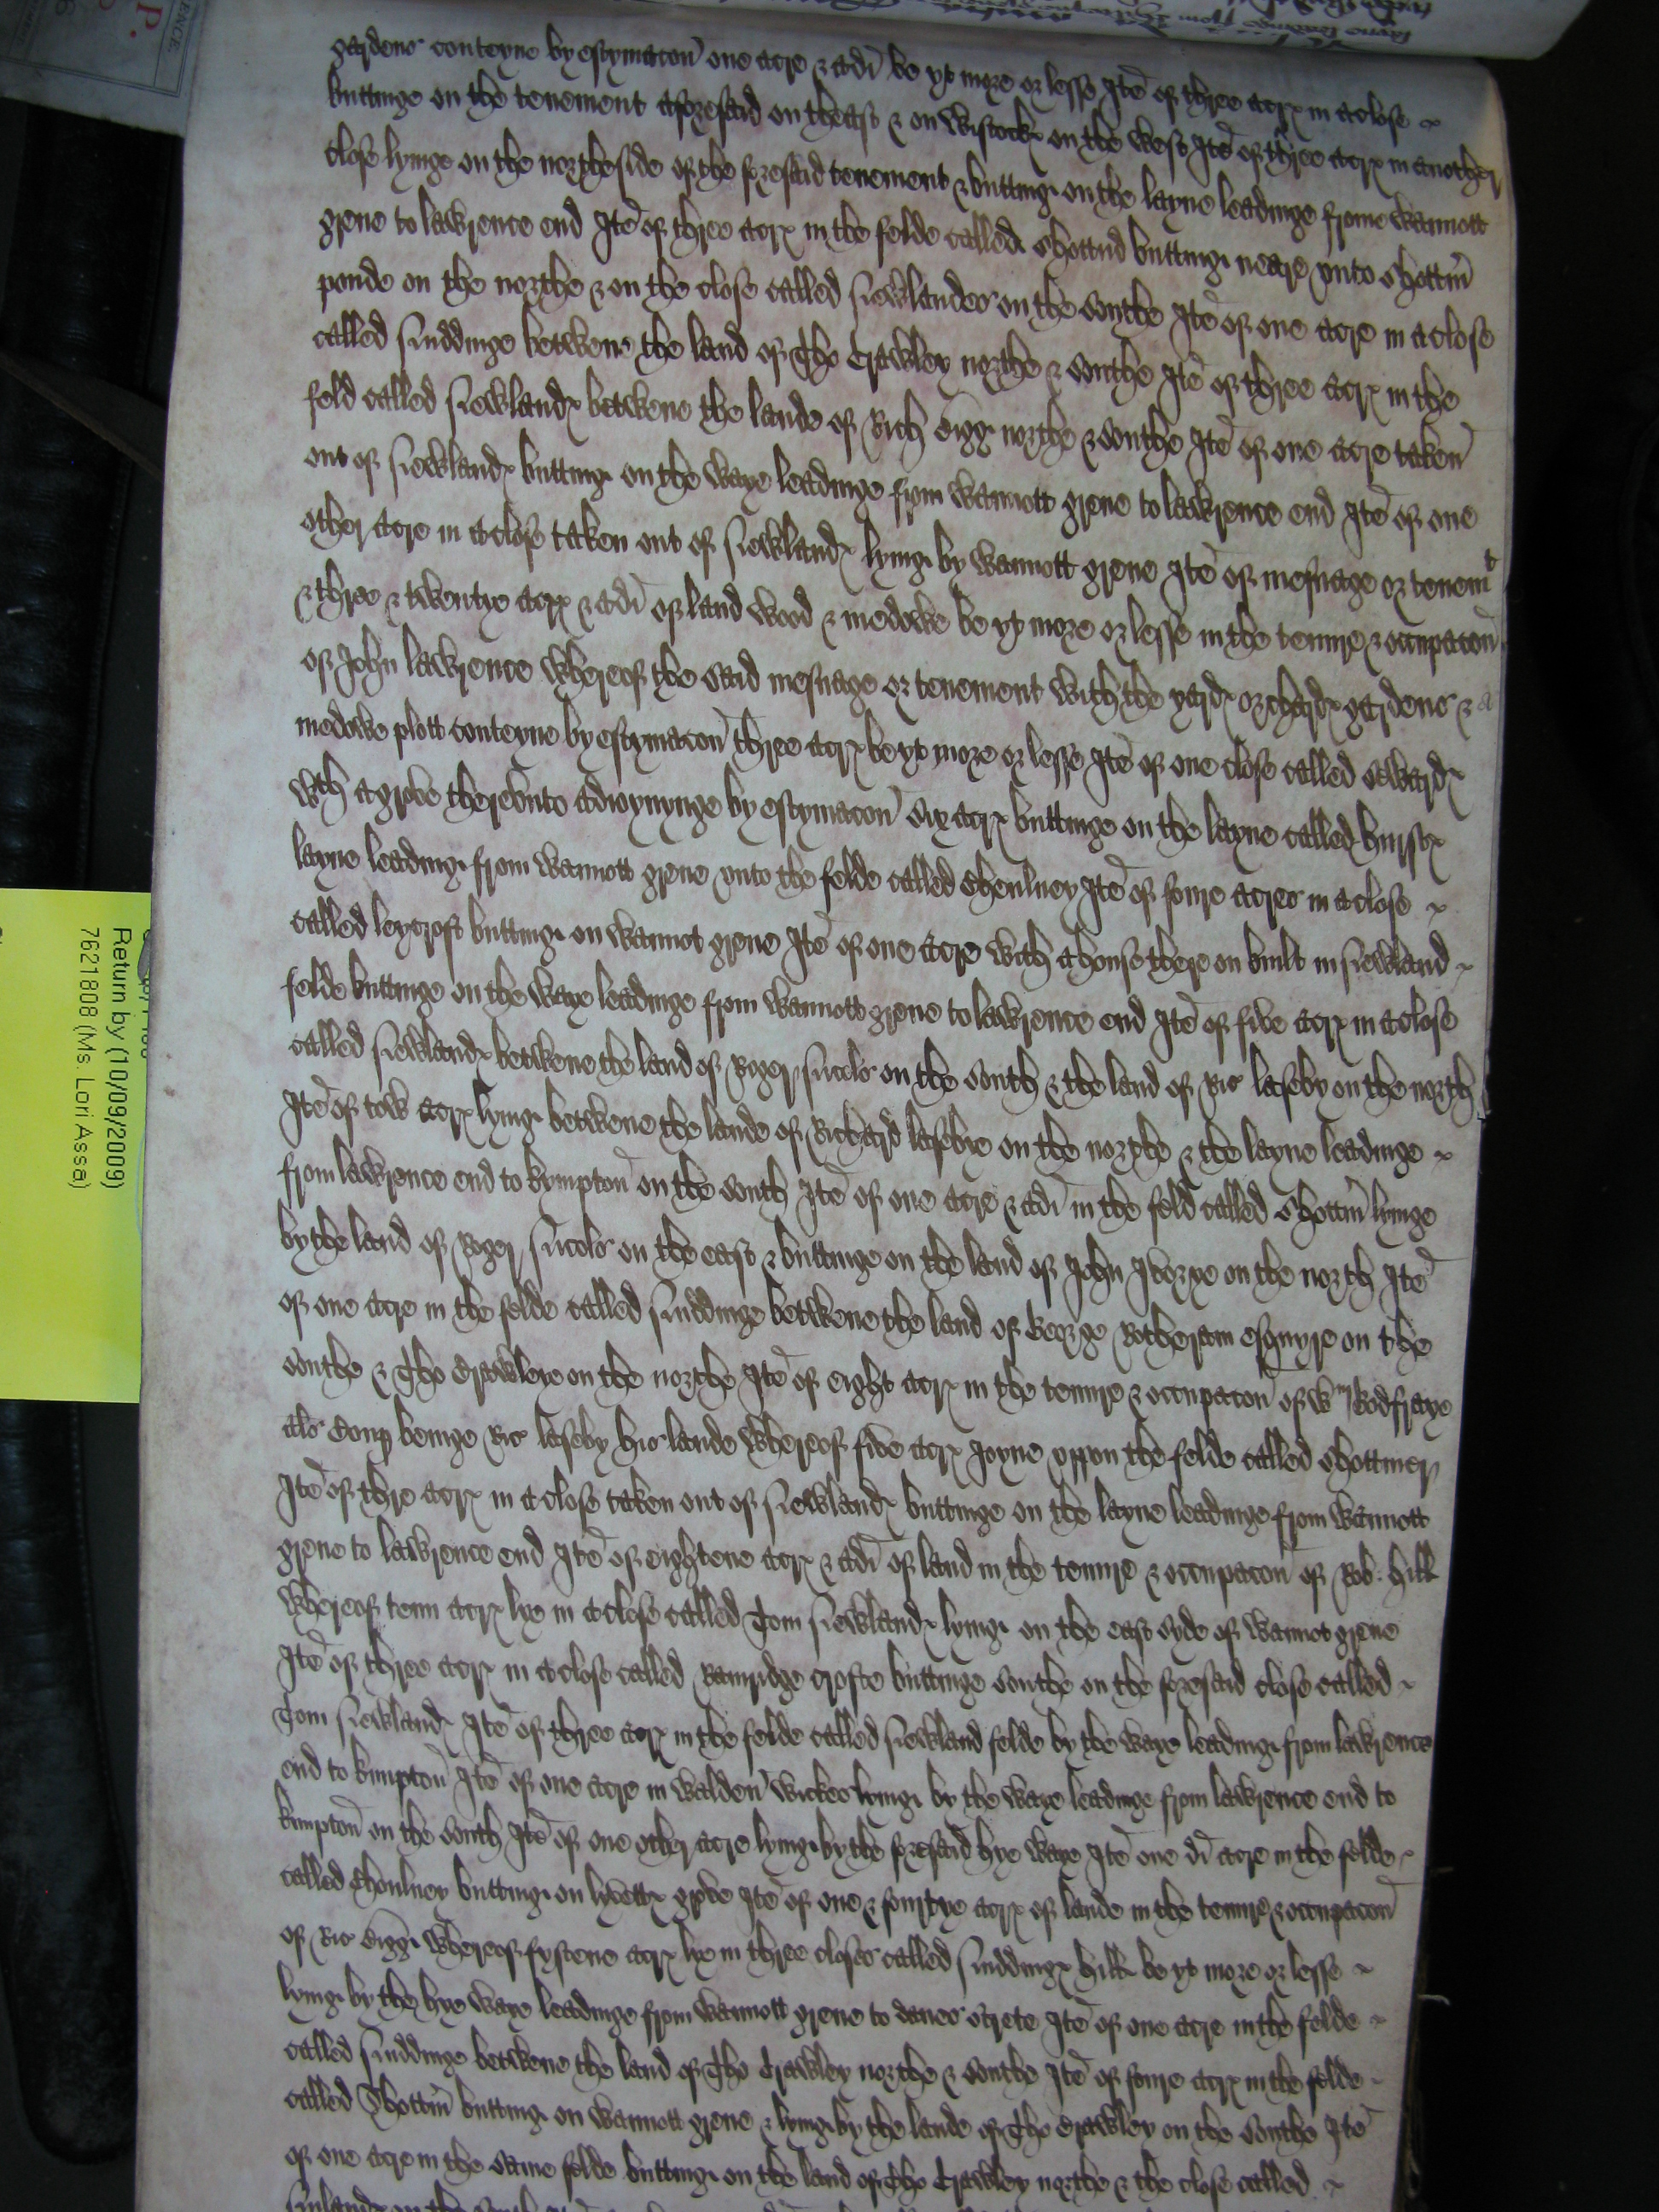 gardens conteyne by estymacon one acre & a di be yt more or lesse Ite of three acr in a close
buttinge on the tenement aforesaid on theast & on Wistock on the west Ite of three acr in another
close lyinge on the northe side of the foresaid tenement & butting on the layne leadinge frome Wannott
grene to lawrence end Ite of three acr in the felde called Shottnd butting neare unto Shottm
ponde on the northe & on the close called Newlandes on the southe Ite of one acre in a close
called Suddinge betwene the land of Tho Crawley northe & southe Ite of three acr in the
feld called Newland betwene the lande of Rich northe & southe Ite of one acre taken
out of Newland butting on the waye leadinge from Wannott grene to lawrence end Ite of one
other acre in a close taken out of Newland lying by Wannott grene Ite of mesuage or tenemt
& three & twentye acr & a di of land wood & medowe be yt more or lesse in the tenure & occupacon
of John lawrence whereof the said mesuage or tenement with the yard orchard gardens & a
medowe plott conteyne by estymacon three acr be yt more or lesse Ite of one close called Seward
wth a grove therevnto adioynynge by estymacon six acr buttinge on the layne called hurst
layne leading from Wannott grene unto the felde called Chenlney Ite of foure acres in a close
called leycroft butting on Wannot grene Ite of one acre with a house there on built in Newland
felde buttinge on the waye leadinge from Wannott grene to lawrence end Ite of five acr in a close
called Newland betwene the land of Roger on the south & the land of Ric laseby on the north
Ite of tow acr lying betwene the lande of Richard lasebye on the northe & the layne leadinge
from lawrence end to kympton on the south Ite of one acre & a di in the feld called Shottm lyinge
by the land of Roger on the east & buttinge on the land of John Ivorye on the north Ite
of one acre in the felde called Suddinge betwene the land of George Rotheram esquyre on the
southe & Tho Crawleye on the northe Ite of eight acr in the tenure & occupacon of Wm Godfraye
als beinge Ric laseby his lande whereof five acr Joyne uppon the felde called Shottmer
Ite of thre acr in a close taken out of Newland buttinge on the layne leadinge from Wannott
grene to lawrence end Ite of eightene acr & a di of land in the tenure & occupacon of Rob hill
whereof tenn acr lye in a close called Tom Newland lying on the east syde of Wannot grene
Ite of three acr in a close called Ramridge crofte buttinge southe on the foresaid close called
Tom Newland Ite of three acr in the felde called Newland felde by the waye leading from lawrence
end to kimpton Ite of one acre in Walden Wickes lying by the waye leadinge from lawrence end to
kimpton on the south Ite of one other acre lying by the foresaid hye waye Ite one di acre in the felde
called Choulney butting on lyvett grove Ite of one & fourtye acr of lande in the tenure & occupacon
of Ric whereof fyftene acr lye in three closes called Sudding hill be yt more or lesse
lying by the hye waye leadinge from Wannott grene to danes strete Ite of one acre in the felde
called Suddinge betwene the land of Tho Crawley northe & southe Ite of foure acr in the felde
called Shottm butting on Wannott grene & lying by the lande of Tho Crawley on the southe Ite
of one acre in the same felde butting on the land of Tho Crawley northe & the close called
Return by (10/09/2009)
7621808 (Ms. Lori Assa)